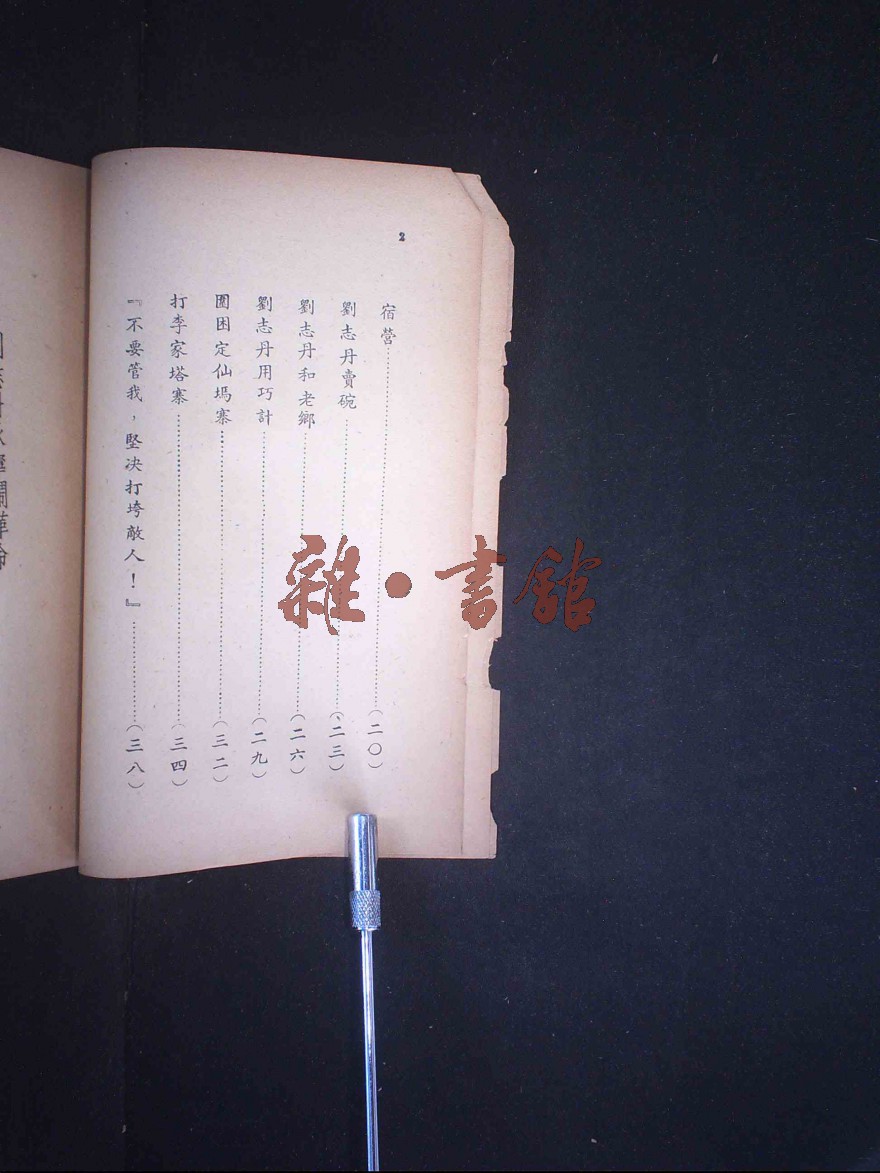 2
宿營……(二〇)
劉志丹賣碗……(二三)
劉志丹和老鄉……(二六)
劉志丹用巧計……(二九)
圍困定仙墕寨……(三二)
打李家塔寨……(三四)
『不要管我，堅决打垮敵人！』……(三八)
雜·書館